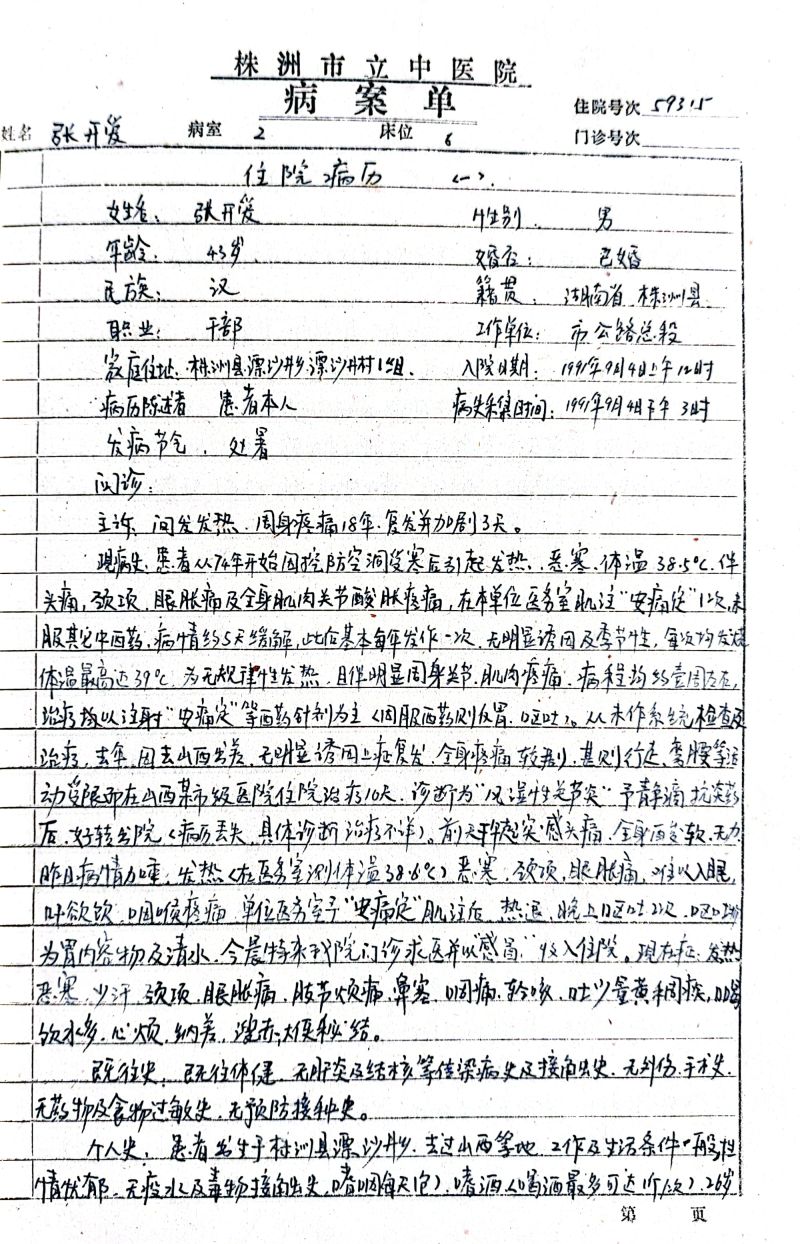 株洲市立中医院
病案单
住院号次 59315
姓名 张开发 病室 2 床位 6 门诊号次
住院病历 (一).
姓名: 张开 性别. 男
年龄: 43岁. 婚否: 已婚
民族: 汉 籍贯. 湖南省 株洲县
职业: 干部 工作单位: 市公路总段
家庭住址: 株洲县漂沙井乡漂沙井村1组. 入院日期: 1991年9月4日上午12时
病历陈述者 患者本人 病史采集时间: 1991年9月4日下午3时
发病节气. 处署
问诊:
主诉: 间发发热. 周身疼痛18年. 复发并加剧3天。
现病史. 患者从74年开始因挖防空洞受寒后引起发热. 恶寒. 体温38.5℃. 伴
头痛, 颈项, 眼胀痛及全身肌肉关节酸胀疼痛, 在本单位医务室肌注"安痛定"1次, 未
服其它中西药, 病情约5天缓解, 此后基本每年发作一次. 无明显诱因及季节性, 每次均发烧
体温最高达39℃. 为无规律性发热. 且伴明显周身关节. 肌肉疼痛. 病程均约壹周左右,
治疗均以注射"安痛定"等西药针剂为主(因服西药则反胃. 呕吐)。从未作系统检查及
治疗, 去年. 因去山西出差. 无明显诱因上症复发. 全身疼痛较剧. 甚则行走. 弯腰等运
动受限而在山西某市级医院住院治疗10天. 诊断为"风湿性关节炎"予青静滴抗炎药
后. 好转出院(病历丢失. 具体诊断治疗不详)。前天下午起突感头痛. 全身酸软. 无力.
昨日病情加重, 发热(在医务室测体温38.6℃)恶寒. 颈项, 眼胀痛, 难以入眠,
叶欲饮, 咽喉疼痛. 单位医务室予"安痛定"肌注后. 热退, 晚上呕吐2次. 呕吐物
为胃内容物及清水. 今晨特来我院门诊求医并以"感冒"收入住院。现在症. 发热
恶寒. 少汗. 颈项. 眼胀痛, 肢节烦痛. 鼻塞. 咽痛. 轻咳. 吐少量黄稠痰, 口渴
饮水多. 心烦. 纳差. 溲赤. 大便秘结。
既往史. 既往体健. 无肝炎及结核等传染病史及接触史. 无外伤. 手术史.
无药物及食物过敏史. 无预防接种史。
个人史. 患者出生于株洲县漂沙井乡. 去过山西等地. 工作及生活条件一般. 性
情忧郁. 无疫水及毒物接触史. 嗜烟(每天1包). 嗜酒(喝酒最多可达1斤/次). 26岁
第 页